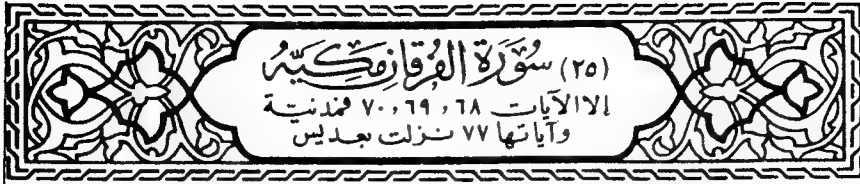 (٢٥) سُورَة الفُرقان مكيّة
إلا الآيات ٦٨ ، ٦٩ ، ٧٠ فمدنيّة
وآياتها ٧٧ نزلت بعد يس